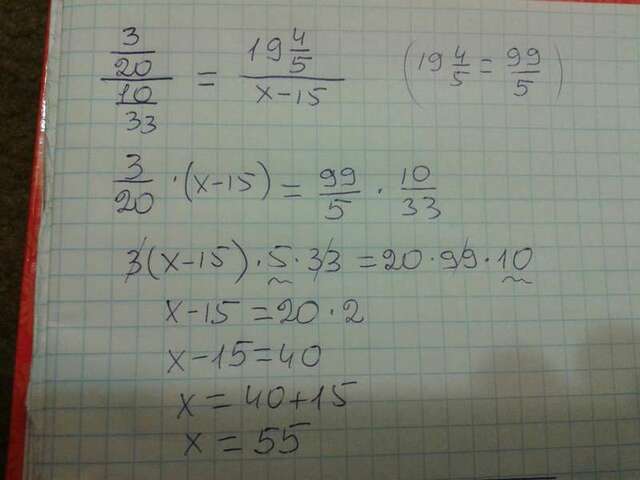 3/20 / 10/33 = 19 4/5 / x-15 (19 4/5 = 99/5)
3/20 · (x-15) = 99/5 · 10/33
3(x-15) · 5 · 33 = 20 · 99 · 10
x-15 = 20 · 2
x-15 = 40
x = 40+15
x = 55